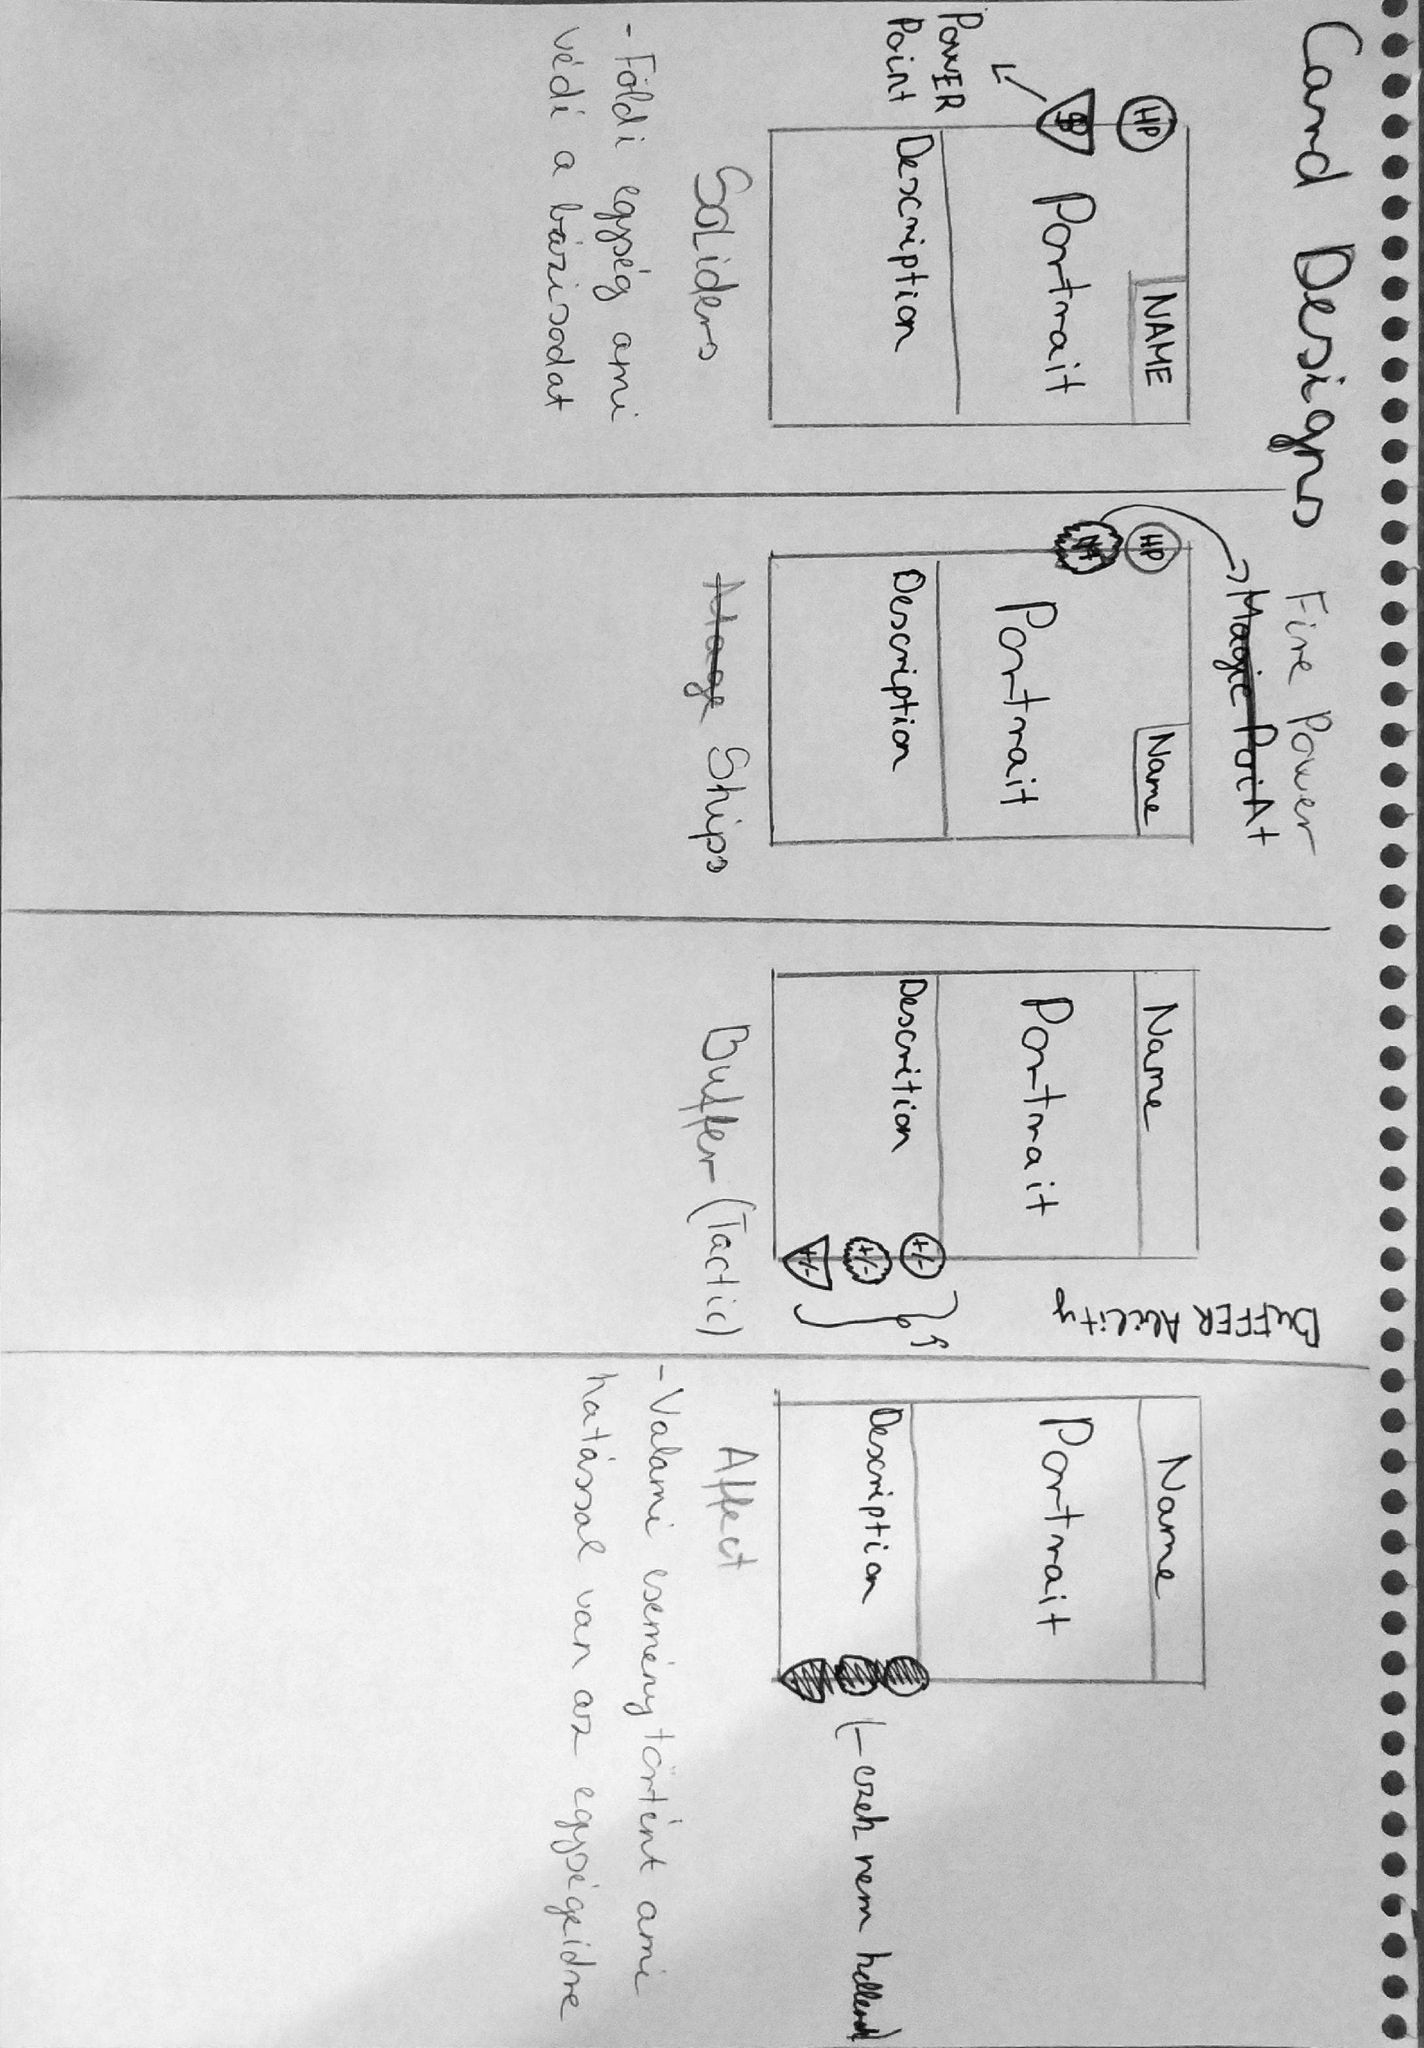 Card Designs
HP
POWER
Point
NAME
Portrait
Description
Soliders
- Földi egység ami
védi a bázisodat
Fire Power
Magic Point
HP
Name
Portrait
Description
Mage Ships
Name
Portrait
Descrition
+/-
+/-
+/-
BUFFER Ability
Buffer (Tactic)
Name
Portrait
Description
(- ezek nem kellenek)
Affect
- Valami esemény történt ami
hatással van az egységeidre